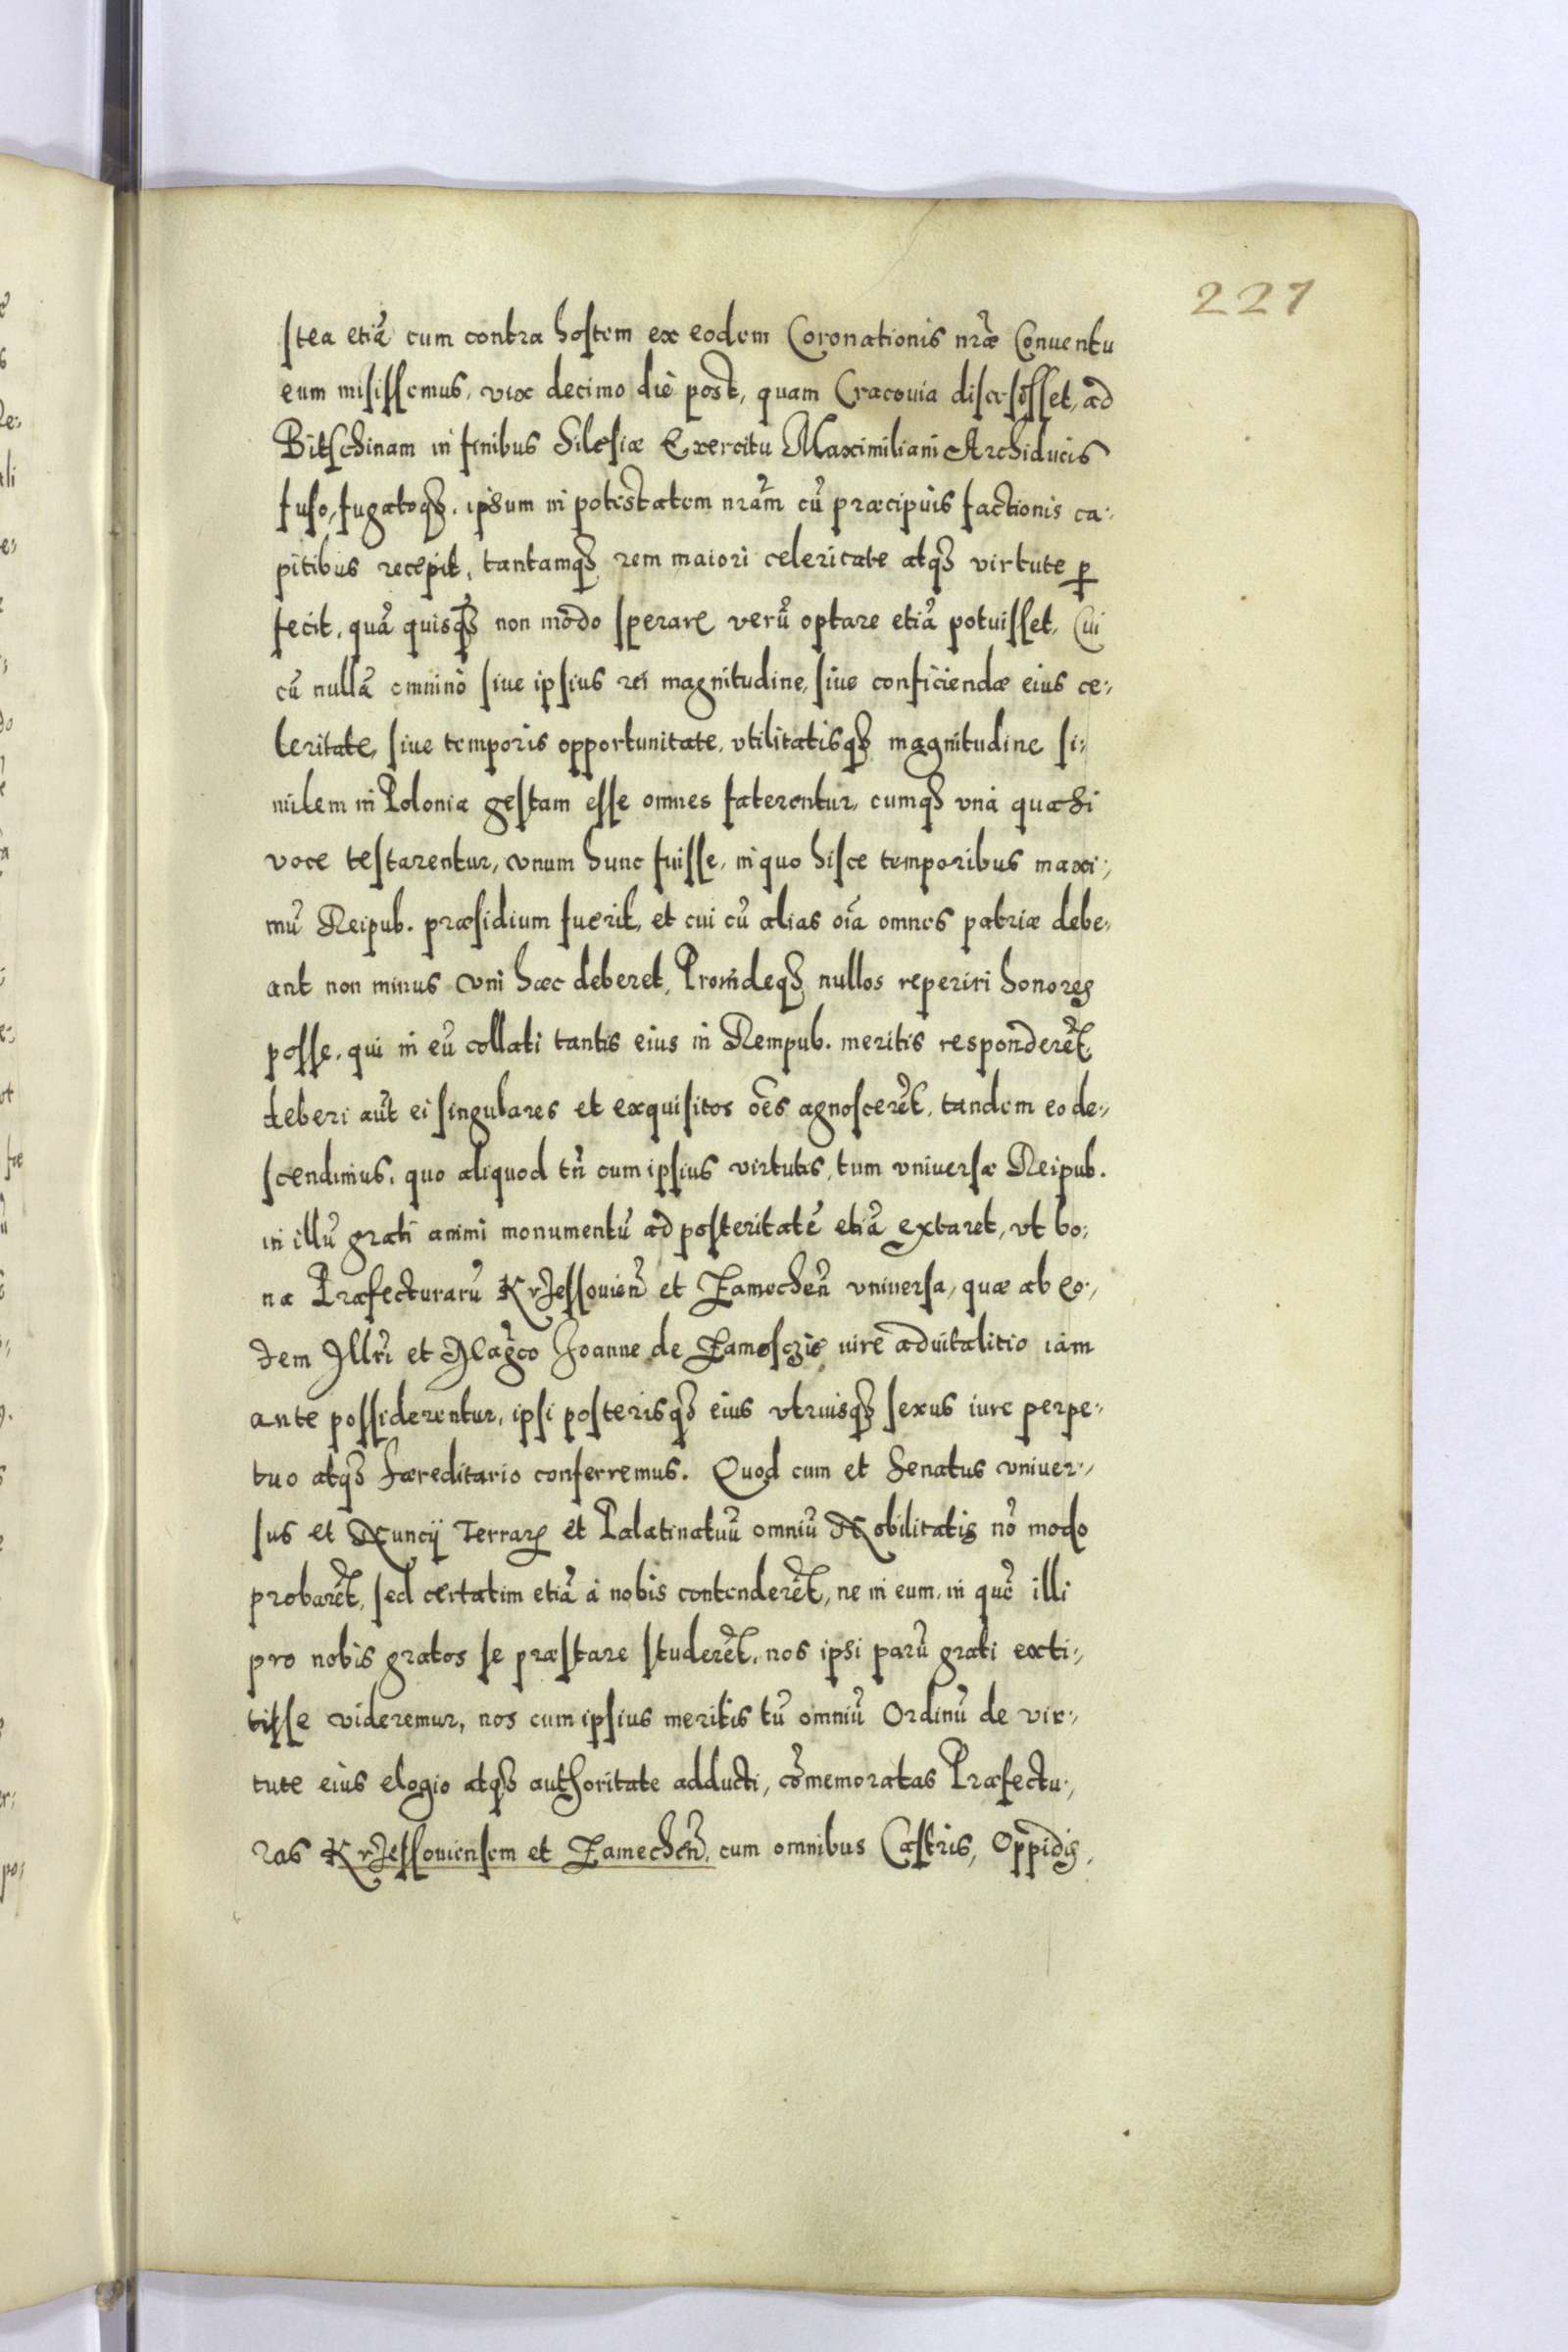 227
stea etiã cum contra hostem ex eodem Coronationis nrãe Conuentu
eum misissemus, vix decimo die post, quam Cracouia discessisset, ad
Bitschinam in finibus Silesiæ Exercitu Maximiliani Archiducis
fuso, fugatoqȝ. ipsum in potestatem nrãm cũ præcipuis factionis ca:
pitibus recepit, tantamqȝ rem maiori celeritate atqȝ virtute ꝑ
fecit, quã quisqȝ̃ non modo sperare verũ optare etiã potuisset, Cui
cũ nullã omninò siue ipsius rei magnitudine, siue conficiendæ eius ce:
leritate, siue temporis opportunitate, vtilitatisqȝ magnitudine si:
milem in Polonia gestam esse omnes faterentur, cumqȝ vnà quasi
voce testarentur, vnum hunc fuisse, in quo hisce temporibus maxi:
mũ Reipub. præsidium fuerit, et cui cũ alias oĩa omnes patriæ debe:
ant non minus vni hæc deberet, Proindeqȝ nullos reperiri honores
posse, qui in eũ collati tantis eius in Rempub. meritis responderẽt,
deberi aũt ei singulares et exquisitos oẽs agnoscerẽt, tandem eo de:
scendimus, quo aliquod tñ cum ipsius virtutis, tum vniuersæ Reipub.
in illũ grati animi monumentũ ad posteritatẽ etiã extaret, vt bo:
na Præfecturarũ Krzessouieñ et Zamecheñ vniuersa, quæ ab eo:
dem Illrĩ et Magc̃o Joanne de Zamosczie iure aduitalitio iam
ante possiderentur, ipsi posterisqȝ eius vtriusqȝ sexus iure perpe:
tuo atqȝ hæreditario conferremus. Quod cum et Senatus vniuer:
sus et Nuncij Terraꝝ et Palatinatuũ omniũ Nobilitatis nõ modo
probarẽt, sed certatim etiã à nobis contenderẽt, ne in eum, in quẽ illi
pro nobis gratos se præstare studerẽt, nos ipsi parũ grati exti:
tisse videremur, nos cum ipsius meritis tũ omniũ Ordinũ de vir:
tute eius elogio atqȝ authoritate adducti, cõmemoratas Præfectu:
ras Krzessouiensem et Zamecheñ, cum omnibus Castris, Oppidis,